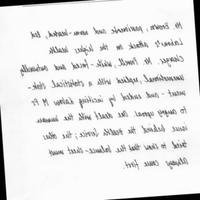 Mr Brown, passionate and warm-hearted, led
Labour's attack on the higher health
charges. Mr. Powell, white-faced and outwardly
unemotional, replied with a statistical state-
ment - and ended by inciting Labour M Ps
to angry uproar. One dealt with the human
issues behind the Health Service; the other
tried to show that the balance-sheet must
always come first.